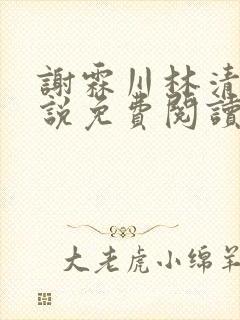 謝霖川林清
說免費閱讀
大老虎小绵羊